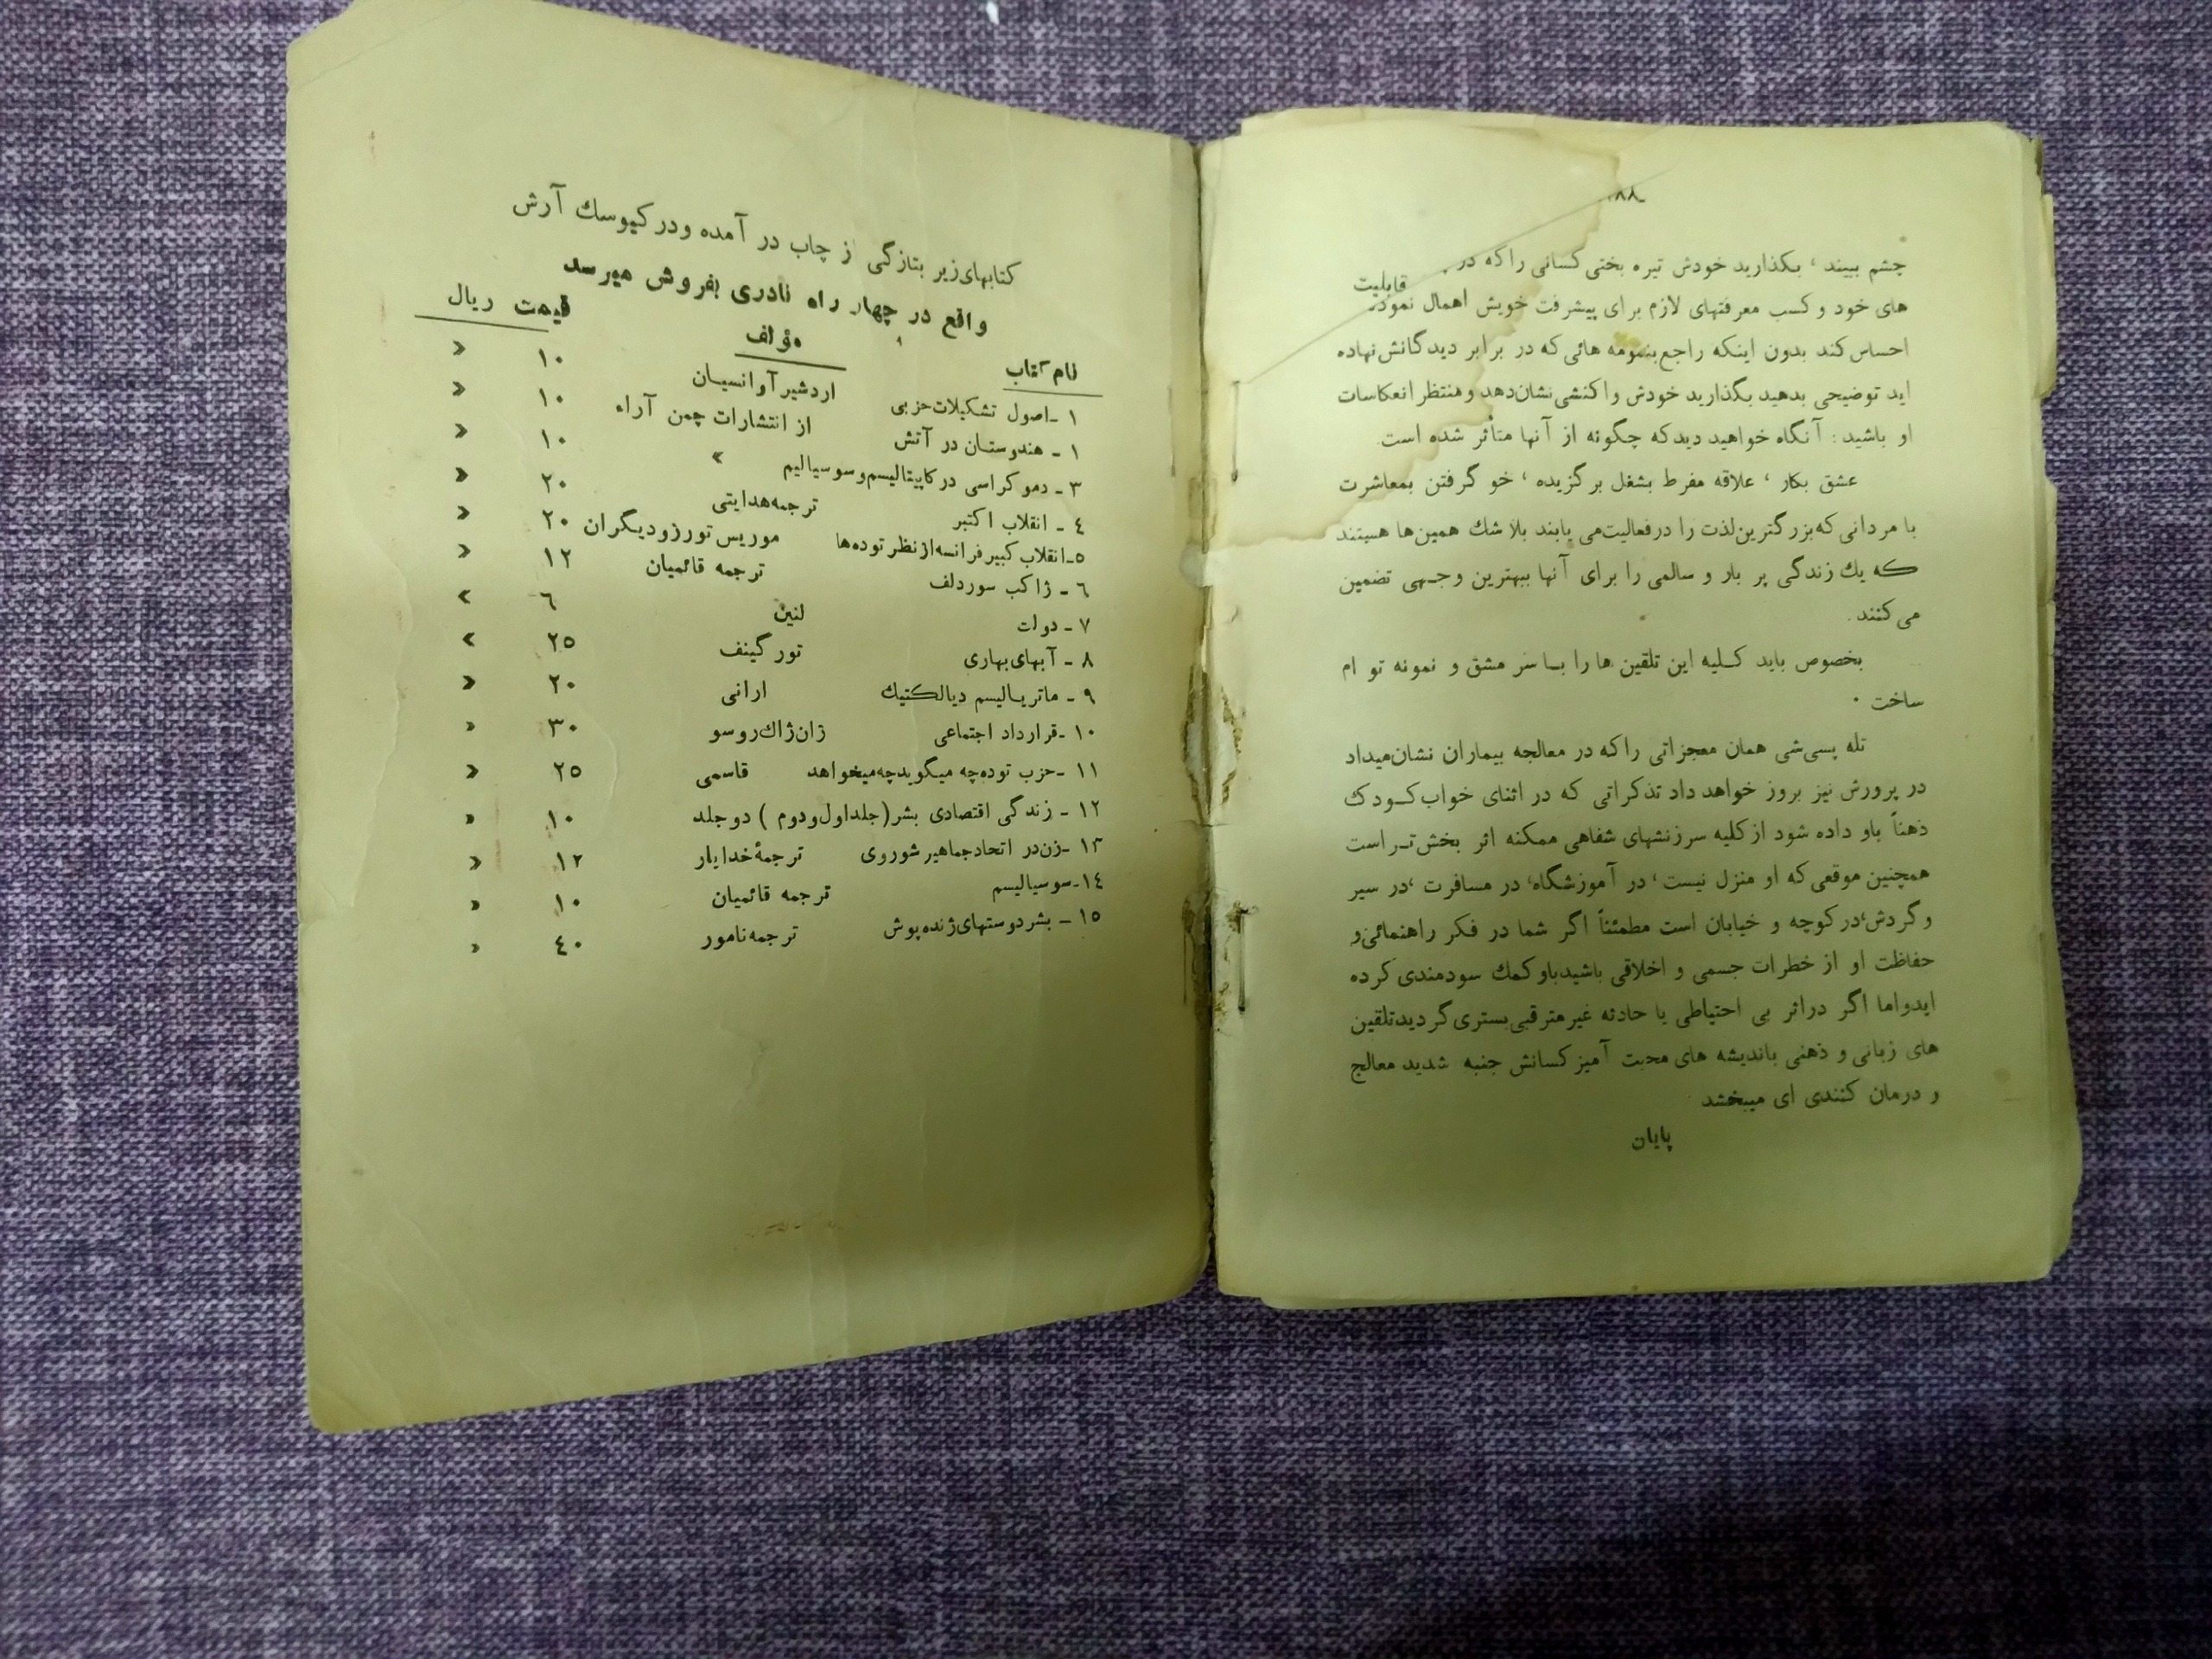 ۸۸
چشم ببیند ، بگذارید خودش تیره بختی کسانی را که در
قابلیت
های خود و کسب معرفتهای لازم برای پیشرفت خویش اهمال نموده
احساس کند بدون اینکه راجع بنمونه هائی که در برابر دیدگانش نهاده
اید توضیحی بدهید بگذارید خودش واکنشی نشان دهد و منتظر انعکاسات
او باشید : آنگاه خواهید دید که چگونه از آنها متأثر شده است.
عشق بکار ، علاقه مفرط بشغل برگزیده ، خو گرفتن بمعاشرت
با مردانی که بزرگترین لذت را در فعالیت می یابند بلا شك همین ها هستند
که یك زندگی پر بار و سالمی را برای آنها ببهترین وجهی تضمین
می کنند .
بخصوص باید کلیه این تلقین ها را با سر مشق و نمونه تو ام
ساخت .
تله پسی شی همان معجزاتی را که در معالجه بیماران نشان میداد
در پرورش نیز بروز خواهد داد تذکراتی که در اثنای خواب کودك
ذهناً باو داده شود از کلیه سرزنشهای شفاهی ممکنه اثر بخش تر است
همچنین موقعی که او منزل نیست ، در آموزشگاه ، در مسافرت ، در سیر
و گردش ، در کوچه و خیابان است مطمئناً اگر شما در فکر راهنمائی و
حفاظت او از خطرات جسمی و اخلاقی باشید باو کمك سودمندی کرده
اید و اما اگر در اثر بی احتیاطی یا حادثه غیر مترقبی بستری گردید تلقین
های زبانی و ذهنی با اندیشه های محبت آمیز کسانش جنبه شدید معالج
و درمان کنندی ای میبخشد
پایان
کتابهای زیر بتازگی از چاپ در آمده و در کیوسك آرش
واقع در چهار راه نادری بفروش میرسد
نام کتاب مؤلف قیمت ریال
۱ - اصول تشکیلات حزبی اردشیر آوانسیان ۱۰ «
۱ - هندوستان در آتش از انتشارات چمن آراء ۱۰ «
۳ - دموکراسی در کاپیتالیسم و سوسیالیم » ۱۰ «
٤ - انقلاب اکتبر ترجمه هدایتی ۲۰ «
۵ - انقلاب کبیر فرانسه از نظر توده ها موریس تورز و دیگران ۲۰ «
٦ - ژاکب سوردلف ترجمه قائمیان ۱۲ «
۷ - دولت لنین ٦ »
۸ - آبهای بهاری تورگینف ۲۵ »
۹ - ماتریالیسم دیالکتیك ارانی ۲۰ «
۱۰ - قرارداد اجتماعی ژان ژاك روسو ۳۰ «
۱۱ - حزب توده چه میگوید چه میخواهد قاسمی ۲۵ «
۱۲ - زندگی اقتصادی بشر ( جلد اول و دوم ) دو جلد ۱۰ «
۱۳ - زن در اتحاد جماهیر شوروی ترجمهٔ خدایار ۱۲ «
۱٤ - سوسیالیسم ترجمه قائمیان ۱۰ «
۱۵ - بشر دوستهای ژنده پوش ترجمه نامور ٤۰ «